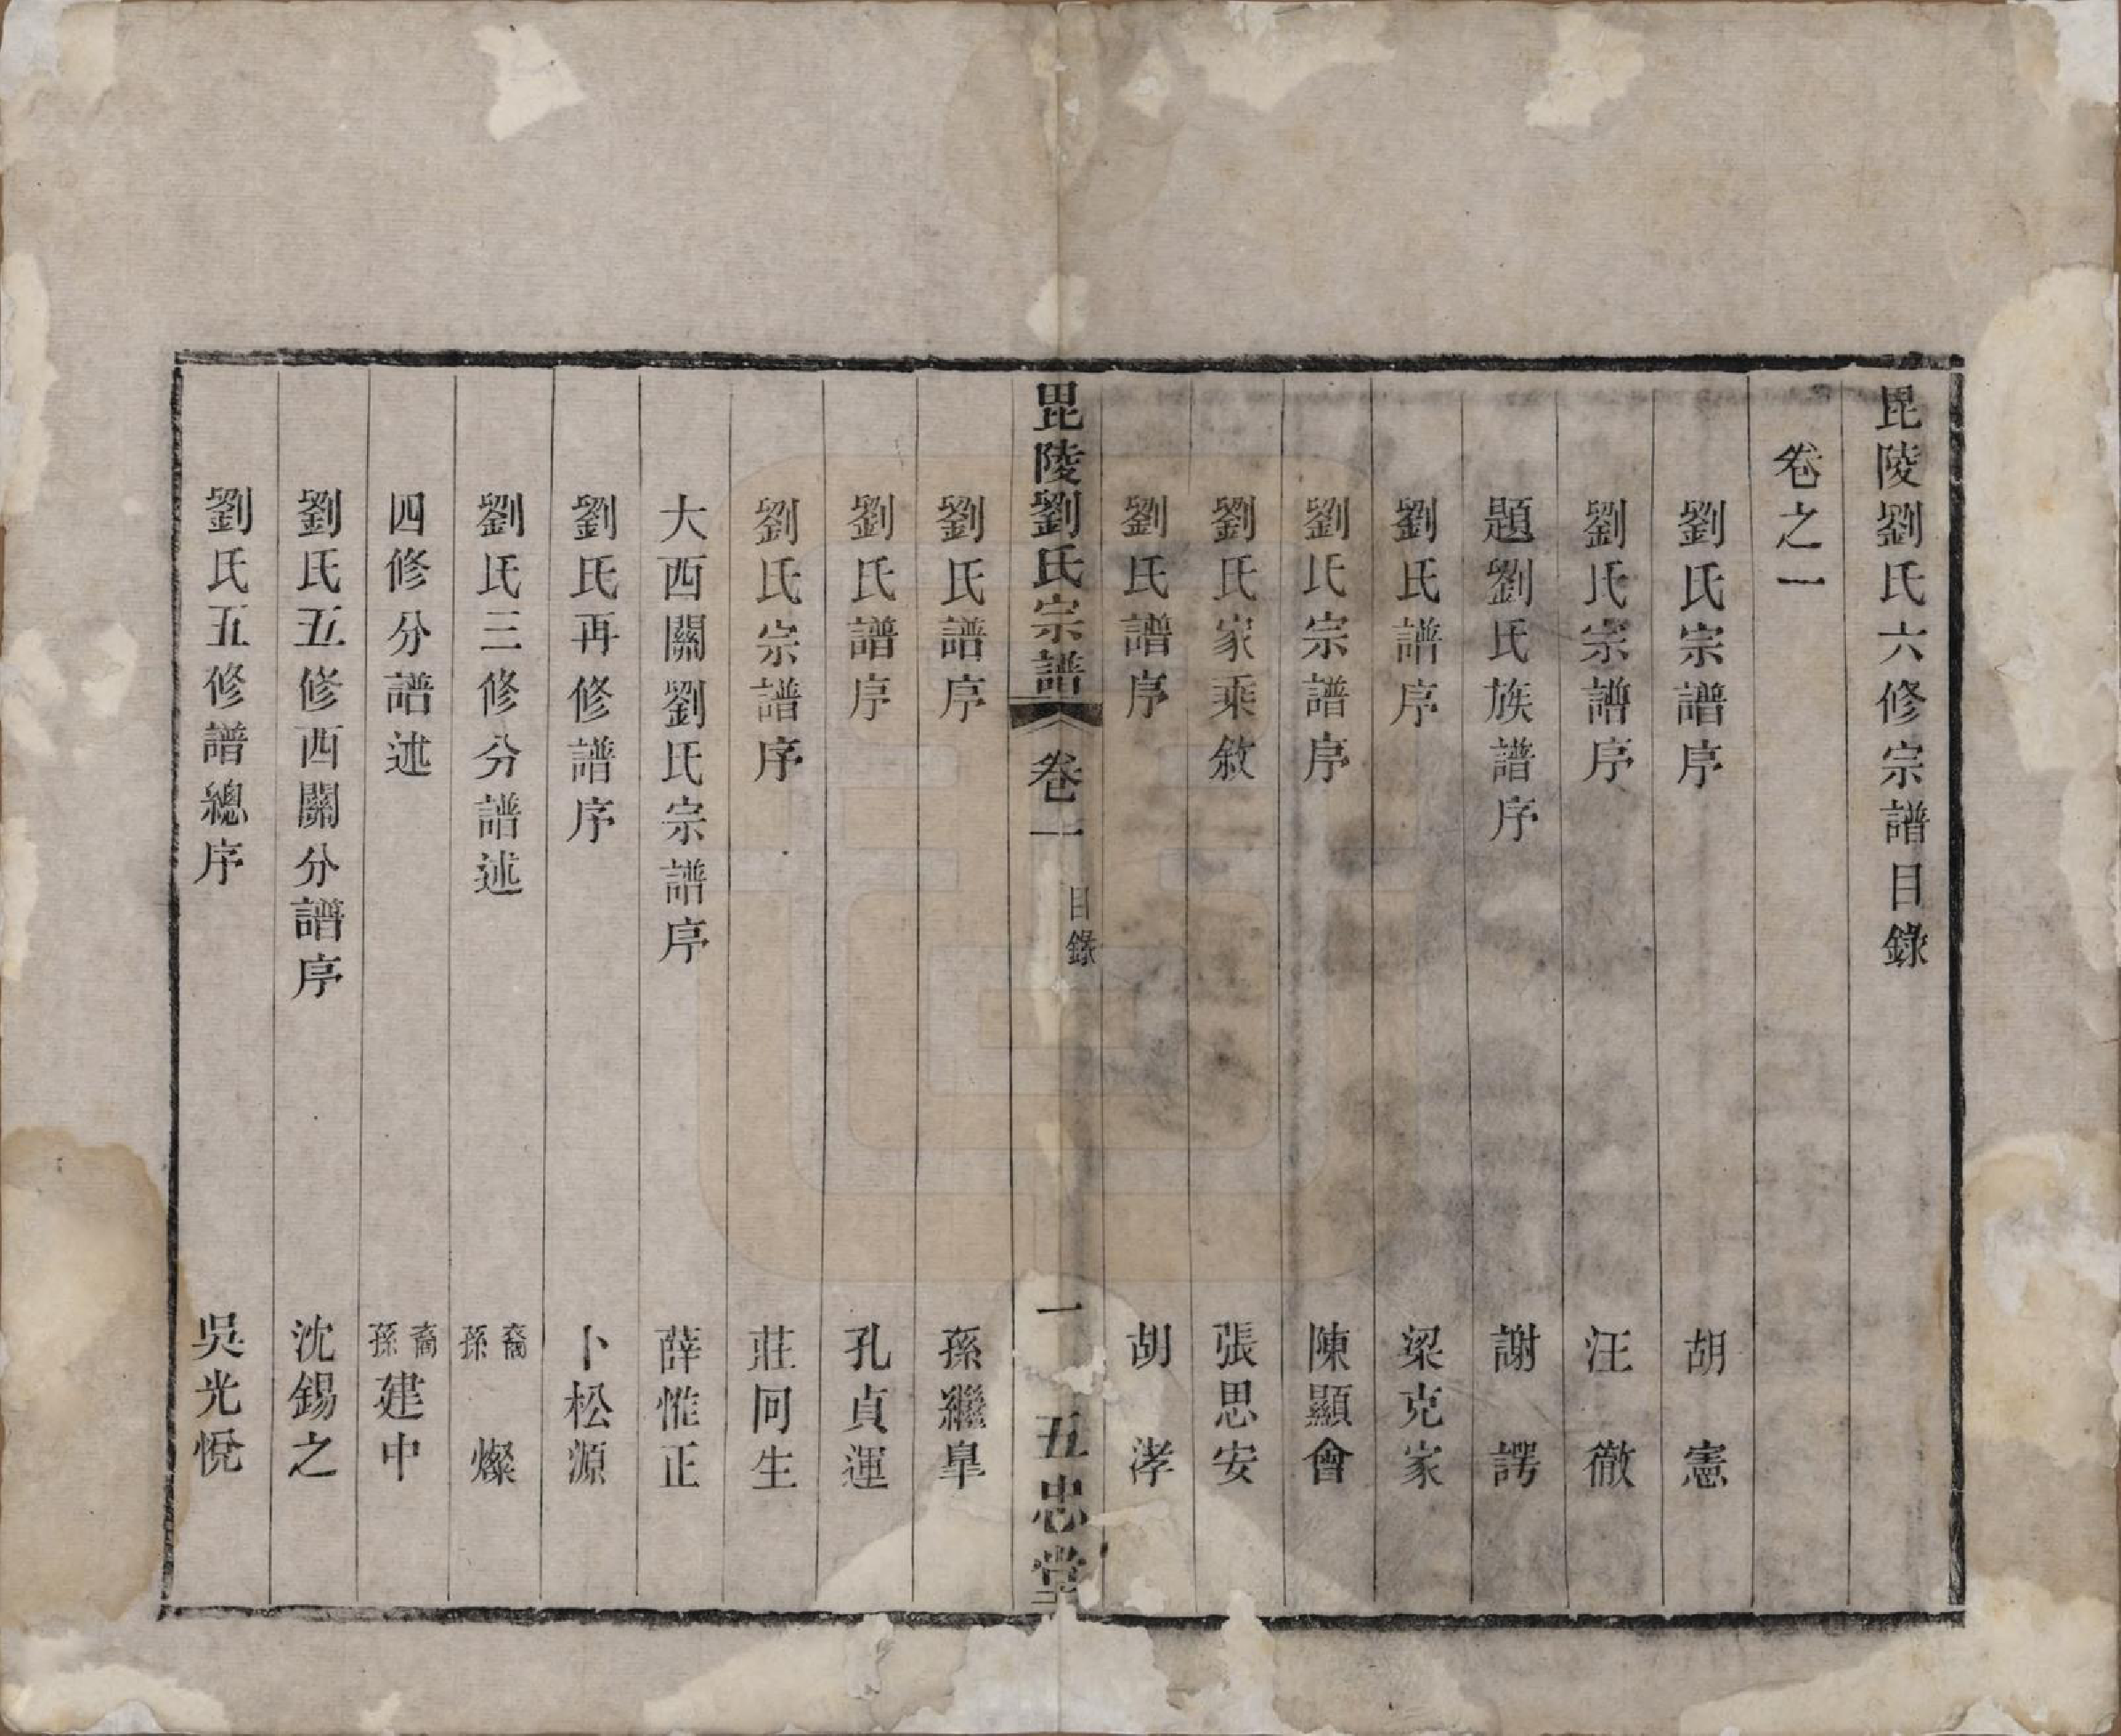 毘陵劉氏六修宗譜目錄
卷之一
劉氏宗譜序 胡憲
劉氏宗譜序 汪徹
題劉氏族譜序 謝諤
劉氏譜序 梁克家
劉氏宗譜序 陳顯會
劉氏家乘敘 張思安
劉氏譜序 胡涍
毘陵劉氏宗譜 卷一 目錄 一 五忠堂
劉氏譜序 孫繼臯
劉氏譜序 孔貞運
劉氏宗譜序 莊同生
大西關劉氏宗譜序 薛惟正
劉氏再修譜序 卜松源
劉氏三修分譜述 裔孫燦
四修分譜述 裔孫建中
劉氏五修西關分譜序 沈錫之
劉氏五修譜總序 吳光悅